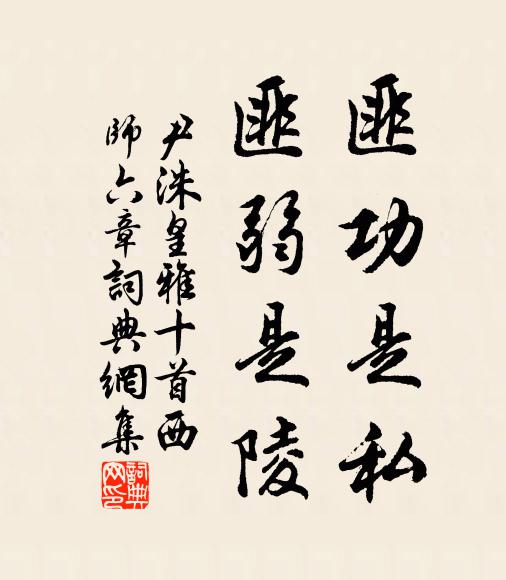 匪功是私
匪弱是陵
尹洙皇雅十首西
師六章詞典網集
詞典网印